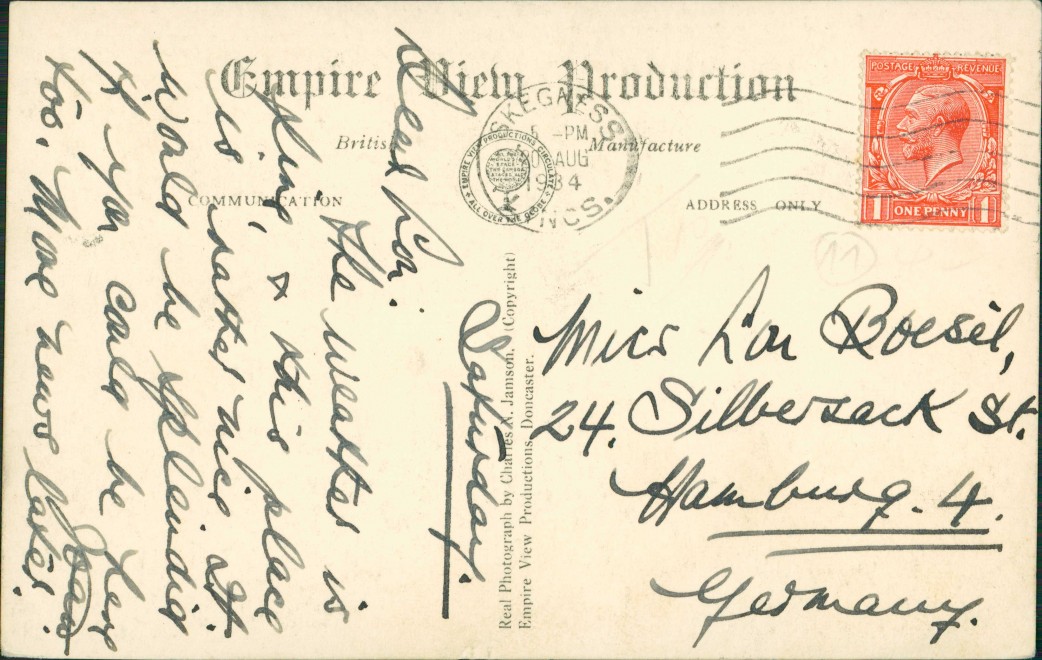 Empire View Production
British Manufacture
COMMUNICATION
ADDRESS ONLY
EMPIRE VIEW PRODUCTIONS CIRCULATE
ALL OVER THE GLOBE
SKEGNESS
5 -PM
AUG
1934
LINCS.
POSTAGE REVENUE
1 ONE PENNY 1
11
Saturday.
Dear Lou.
The weather is
fine, & this place
is rather nice. It
would be splendid
if you could be here
too. More news later.
Joan
Real Photograph by Charles N. Jamson. (Copyright)
Empire View Productions, Doncaster.
Miss Lou Boesel,
24. Silbersack St.
Hamburg. 4.
Germany.